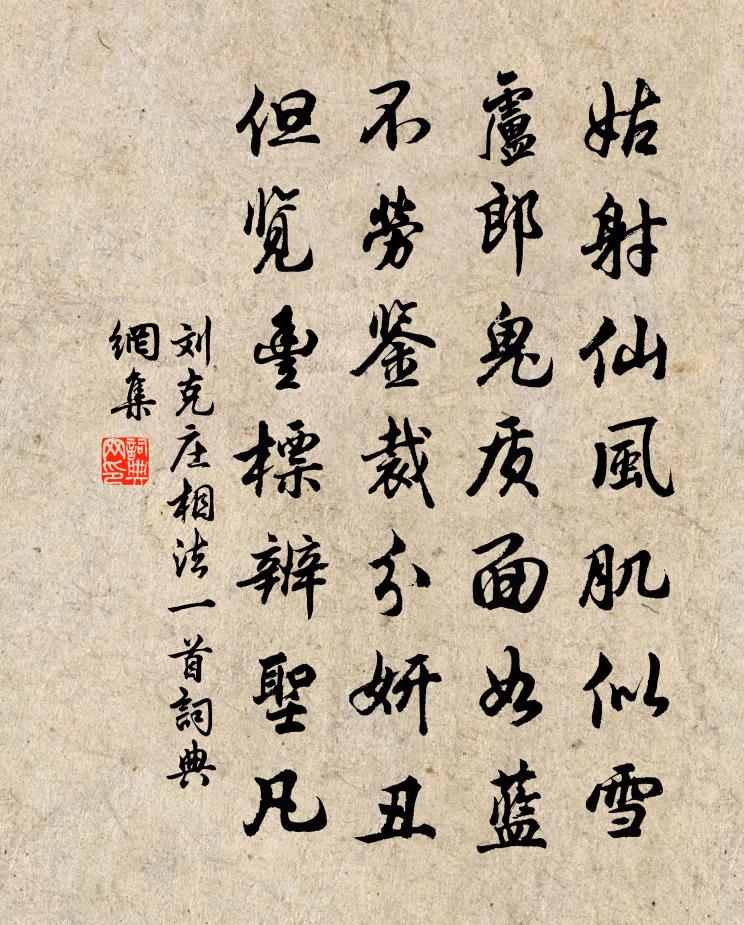 姑射仙風肌似雪
盧郎鬼质面如藍
不勞鉴裁分妍丑
但览豊標辨聖凡
刘克庄相法一首詞典
網集
詞典
网印